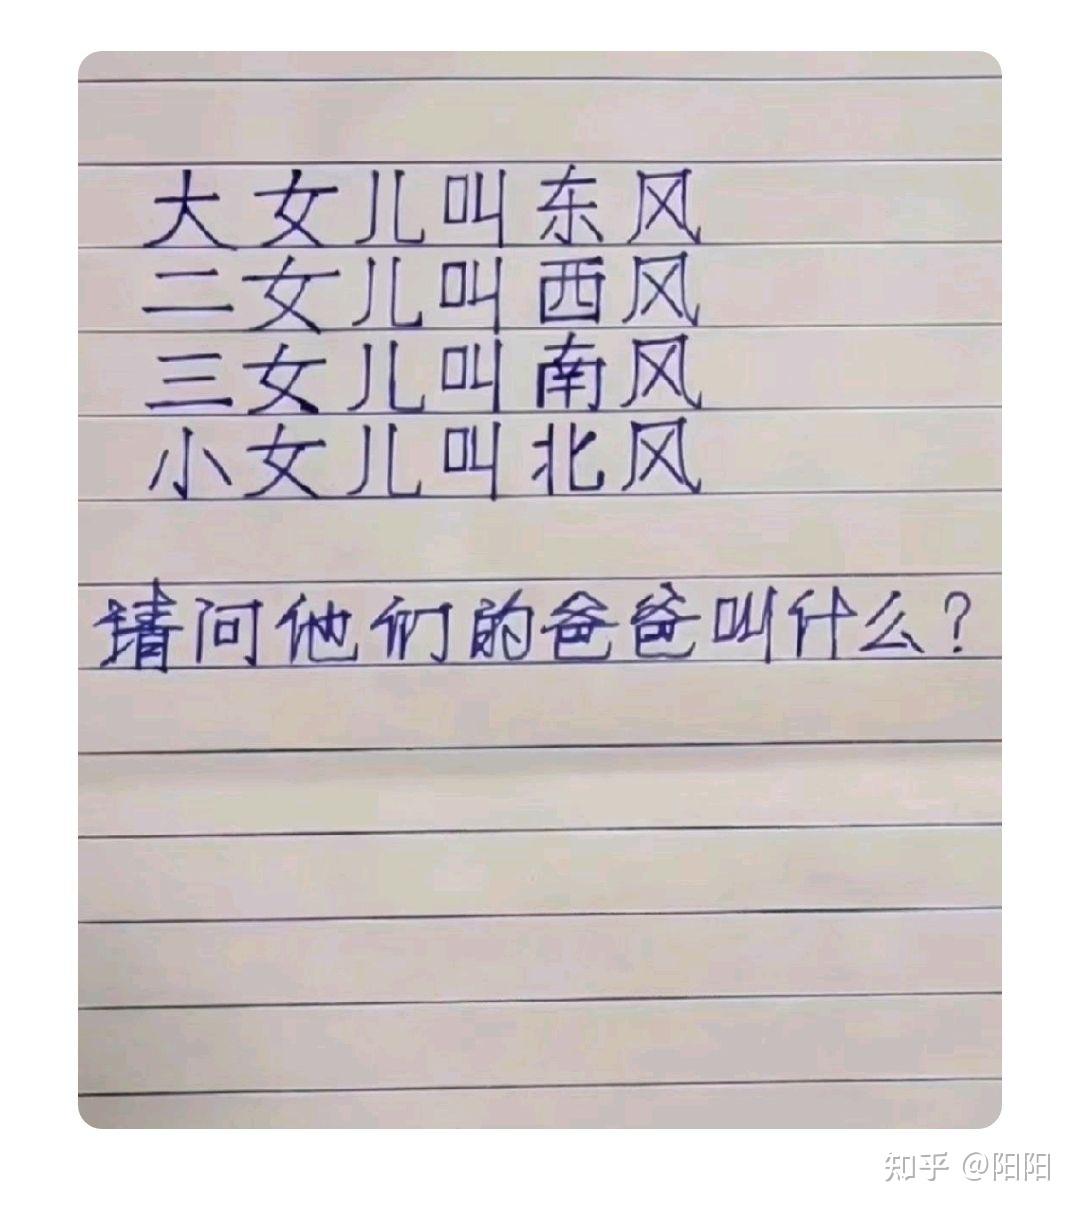 大女儿叫东风
二女儿叫西风
三女儿叫南风
小女儿叫北风
请问他们的爸爸叫什么?
知乎 @阳阳